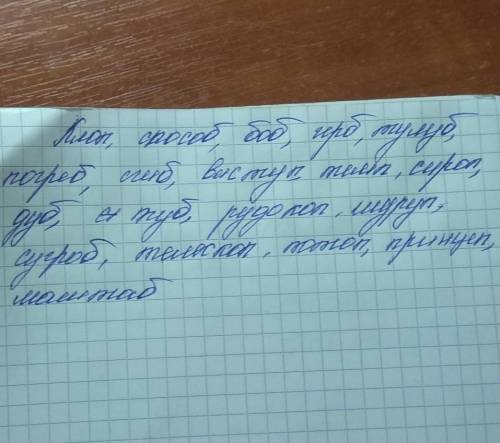 Клоп, способ, боб, герб, тулуб,
погреб, сноб, выступ, темп, сироп,
дуб, зуб, рудокоп, шуруп,
сугроб, телескоп, потоп, принцеп,
маштаб